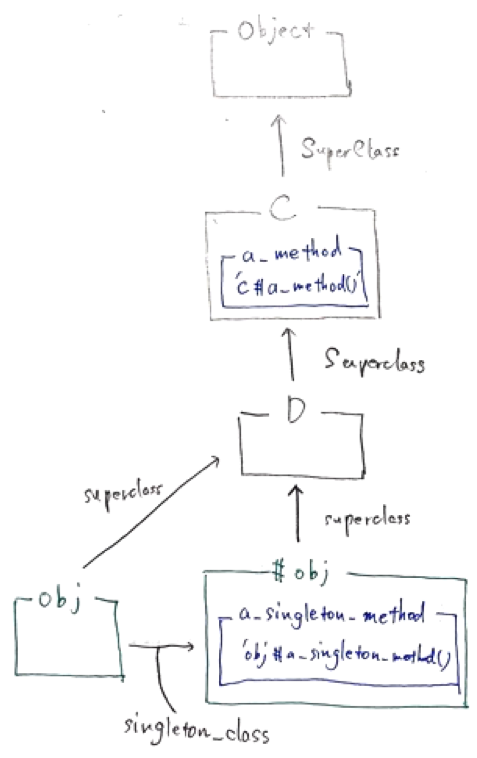 Object
SuperClass
C
a_method
'C#a_method()'
Superclass
D
superclass
superclass
#obj
obj
a_singleton_method
'obj#a_singleton_method()
singleton_class